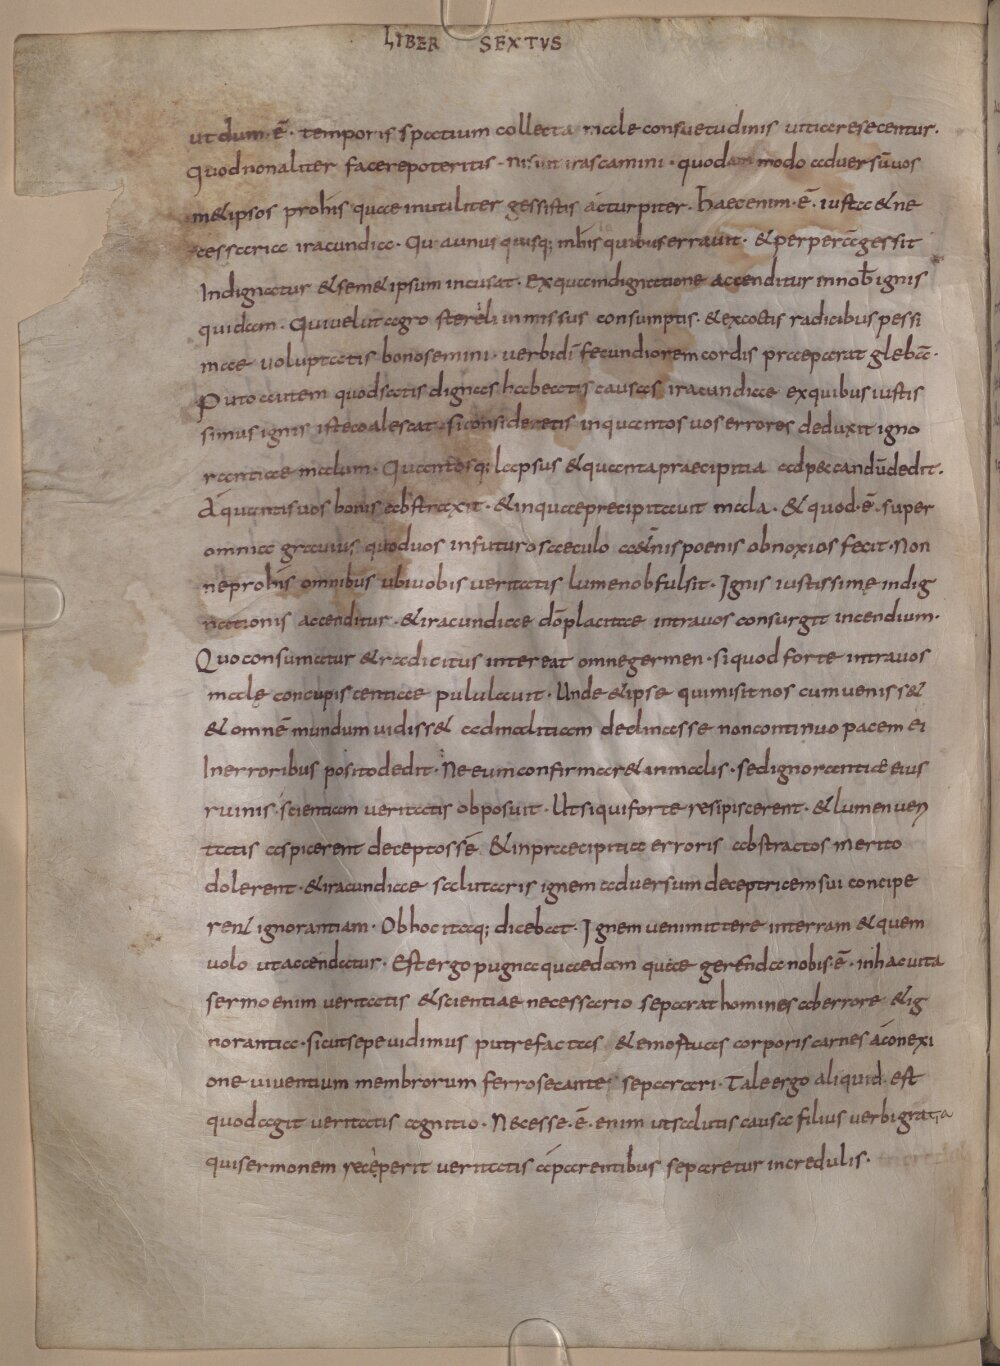 LIBER SEXTVS
ut dum·ē· temporis spatium collecta male consuetudinis uitia resecentur·
Quod non aliter facere poteritis· nisi ut irascamini· quodam modo aduersū uos
m& ipsos pro his quae inutiliter gessistis ac turpiter· haec enim·ē· iusta & ne
cessaria iracundia· Qua unus quisq; in his quibus errauit· & perperā gessit
Indignatur & sem& ipsum incusat· Ex qua indignatione accenditur in nob ignis
quidam· Qui uelut agro sterili inmissus consumptis· & excoctis radicibus pessi
mae uoluptatis bono semini· uerbi dī fecundiorem cordis praeparat glebā·
Puto autem quod satis dignas habeatis causas iracundiae ex quibus iustis
simus ignis iste coalescat· si consideretis in quantos uos errores deduxit igno
rantiae malum· Quantosq; lapsus & quanta praecipitia ad peccandū dedit·
A quantis uos bonis abstraxit· & in quae precipitauit mala· & quod·ē· super
omnia grauius quod uos in futuro saeculo aet̄nis poenis obnoxios fecit· Non
ne pro his omnibus ubi uobis ueritatis lumen obfulsit· Ignis iustissimę indig
nationis accenditur· & iracundiae dō placitae intra uos consurgit incendium·
Quo consumatur & radicitus intereat omne germen· si quod forte intra uos
malę concupiscentiae pululauit· Unde & ipse qui misit nos cum uenissӕ
& omnē mundum uidiss& ad malitiam declinasse non continuo pacem ei
In erroribus posito dedit· Ne eum confirmar& in malis· sed ignorantiae eius
ruinis· scientiam ueritatis obposuit· Ut si qui forte resipiscerent· & lumen ueri
tatis aspicerent deceptos sē & in praecipitia erroris abstractos merito
dolerent· & iracundiae salutaris ignem aduersum deceptricem sui concipe
rent ignorantiam· Ob hoc itaq; dicebat· Ignem ueni mittere in terram & quem
uolo ut accendatur· Est ergo pugna quaedam quae gerenda nobis·ē· in hac uita
sermo enim ueritatis & scientiae necessario separat homines ab errore & ig
norantia· sicut sepe uidimus putrefactas & emortuas corporis carnes a conexi
one uiuentium membrorum ferro secante separari· Tale ergo aliquid est
quod agit ueritatis agnitio· Necesse·ē· enim ut salutis causa filius uerbi gratia
qui sermonem receperit ueritatis a parentibus separetur incredulis·